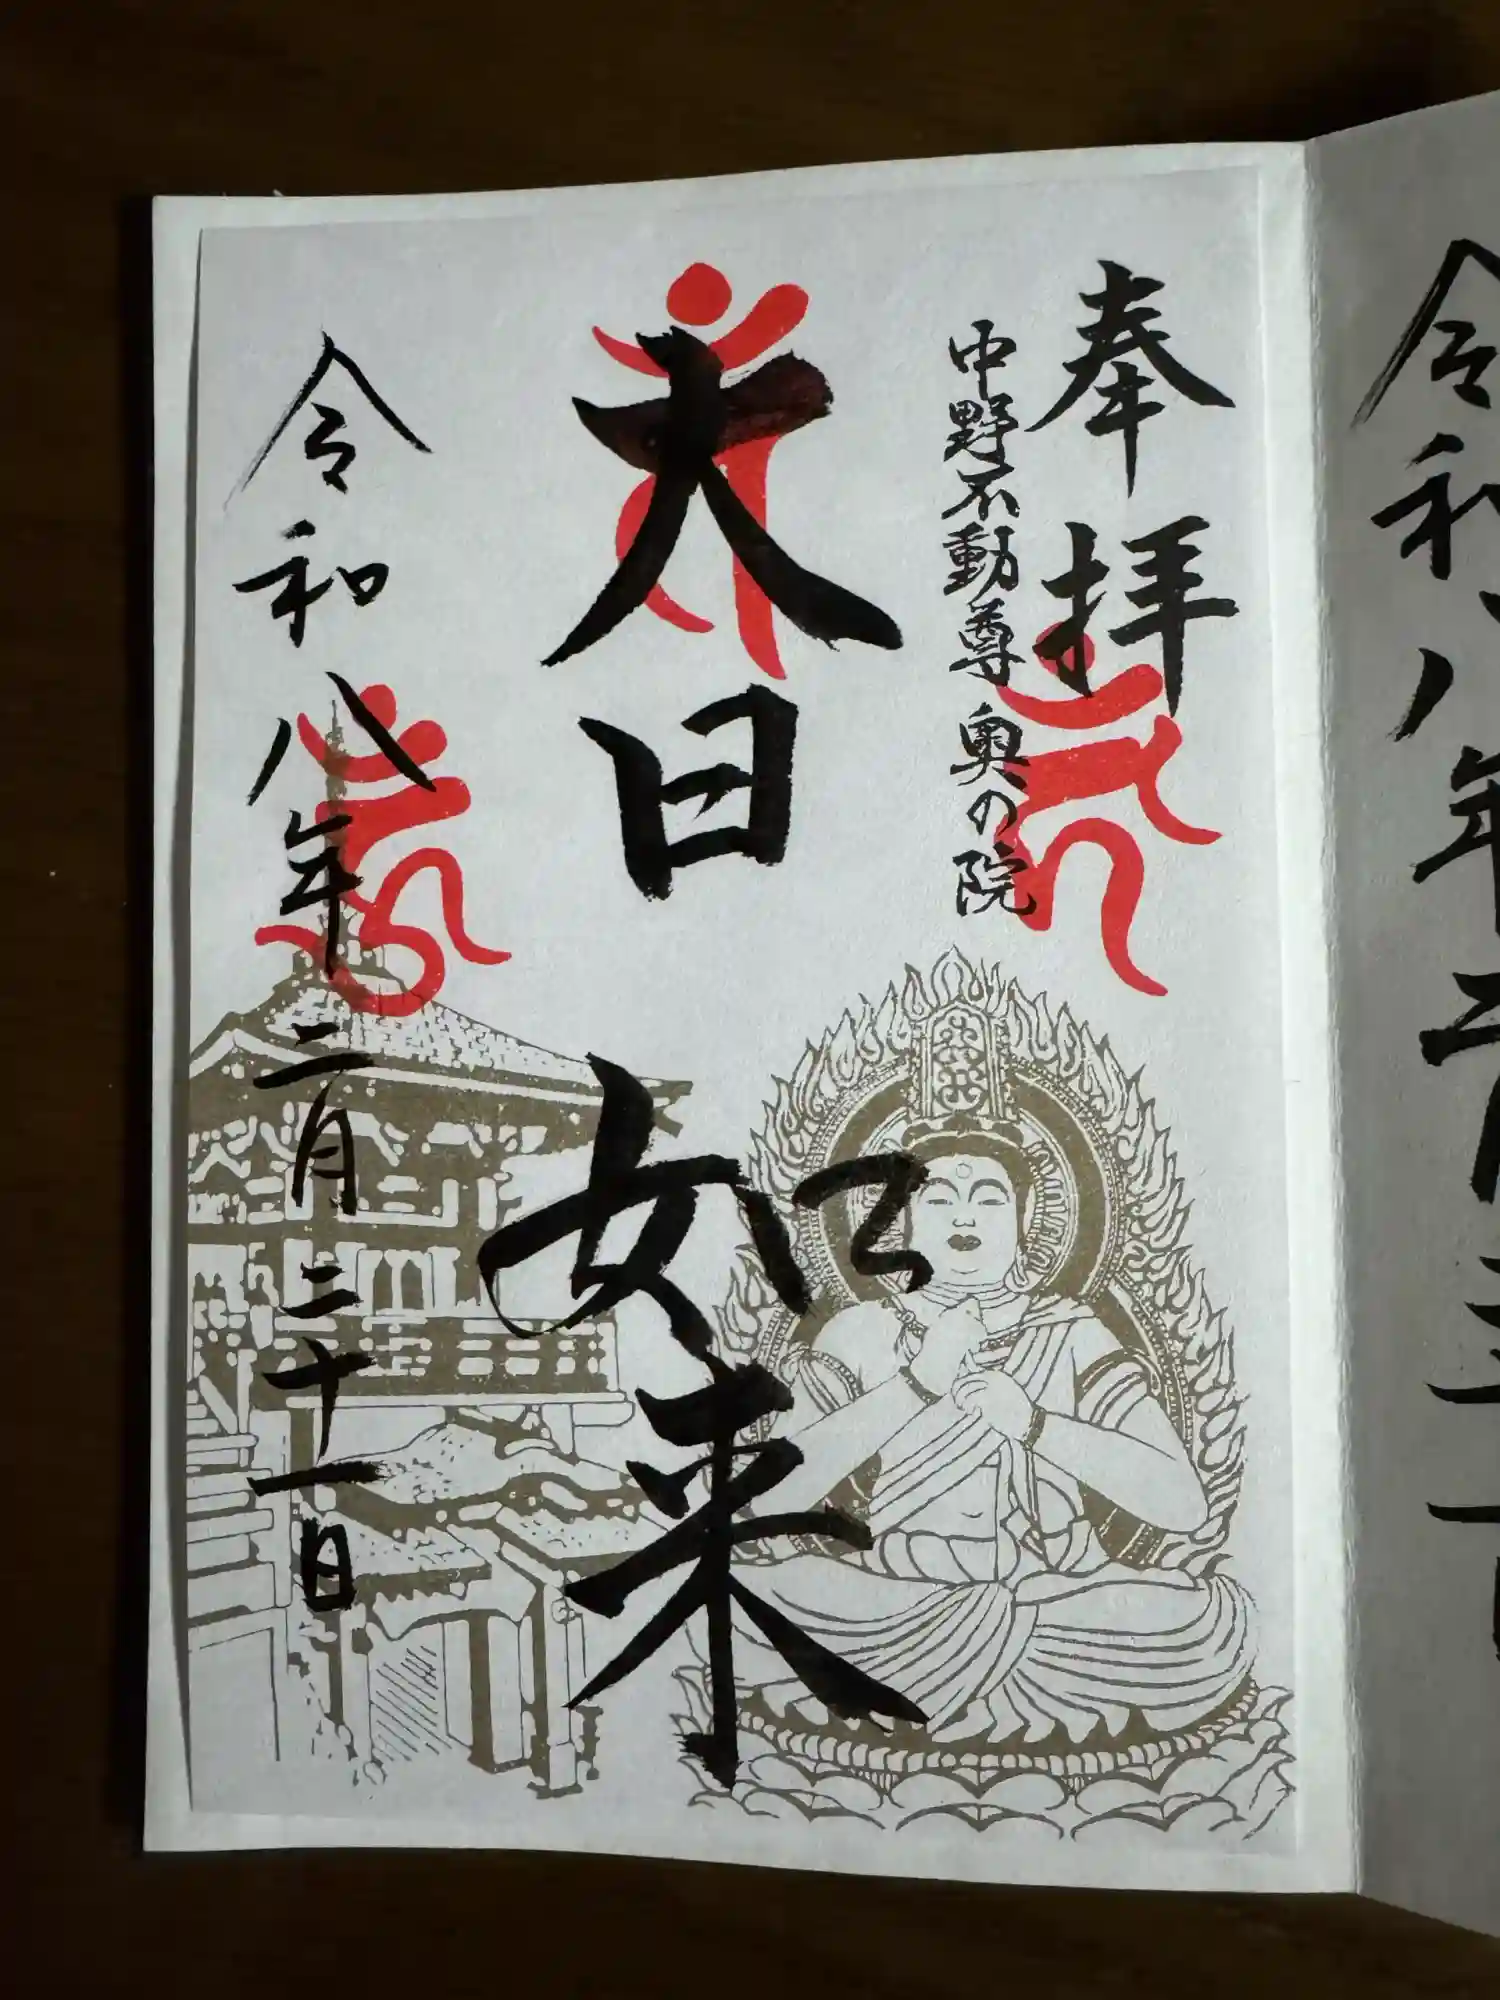 奉拝
中野不動尊 奥の院
大日如来
令和八年二月二十一日